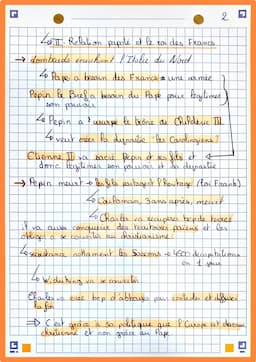 2
↳ II. Relation papoté et le roi des Francs
→ lombards envahient l'Italie du Nord
↳ Pape a besoin des Francs = une armée
Pepin le Bref a besoin du Pape pour légitimer son pouvoir
↳ Pepin a usurpé le trône de Childéric III
↳ veut créer la dynastie "les Carolingiens"
Etienne II va sacré Pepin et ses fils et donc légitimer son pouvoir et sa dynastie
→ Pepin meurt → les fils partagent l'héritage (loi Frank)
↳ Carloman, 3 ans après, meurt
↳ Charles va récupérer bcp de terres
il va aussi conquérir des territoires païens et les obliger à se convertir au christianisme
↳ notamment les Saxons → 4500 décapitations en 1 jour
↳ Widukind va se convertir
Charles va créer bcp d'abbayes pour contrôler et diffuser la foi
⇒ C'est grâce à sa politique que l'Europe est devenue chrétienne et non grâce au Pape